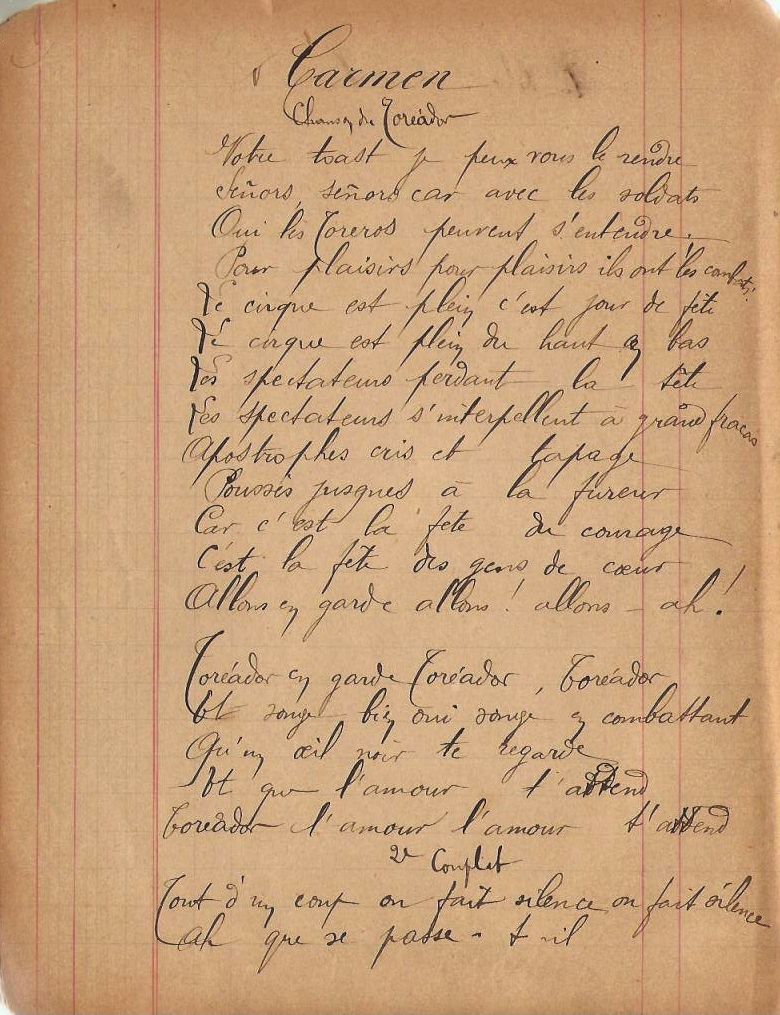 Carmen
Chanson du Toréador
Votre toast je peux vous le rendre
Señors, señors car avec les soldats
Oui les Toreros peuvent s'entendre.
Pour plaisirs pour plaisirs ils ont les combats!
Le cirque est plein c'est jour de fête
Le cirque est plein du haut en bas
Les spectateurs perdant la tête
Les spectateurs s'interpellent à grand fracas
Apostrophes cris et tapage
Poussés jusques à la fureur
Car c'est la fête du courage
C'est la fête des gens de cœur
Allons en garde allons! allons - ah!
Toréador en garde Toréador, Toréador
Et songe bien oui songe en combattant
Qu'un œil noir te regarde
Et que l'amour t'attend
Toréador l'amour l'amour t'attend
2e Couplet
Tout d'un coup on fait silence on fait silence
Ah que se passe-t-il